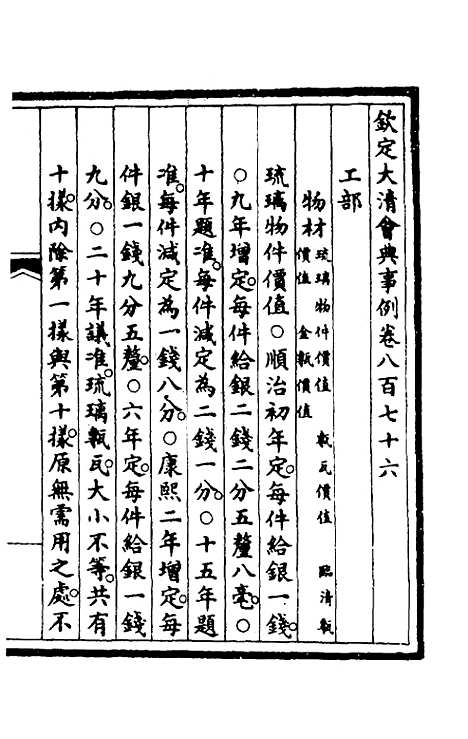 欽定大清會典事例卷八百七十六
工部
物材 琉璃物件價值 甎瓦價值 臨清甎
價值 金甎價值
琉璃物件價值○順治初年定。每件給銀一錢。
○九年增定。每件給銀二錢二分五釐八毫。○
十年題准。每件減定為二錢一分。○十五年題
准。每件減定為一錢八分。○康熙二年增定。每
件銀一錢九分五釐。○六年定。每件給銀一錢
九分。○二十年議准。琉璃甎瓦。大小不等。共有
十樣。內除第一樣與第十樣。原無需用之處。不